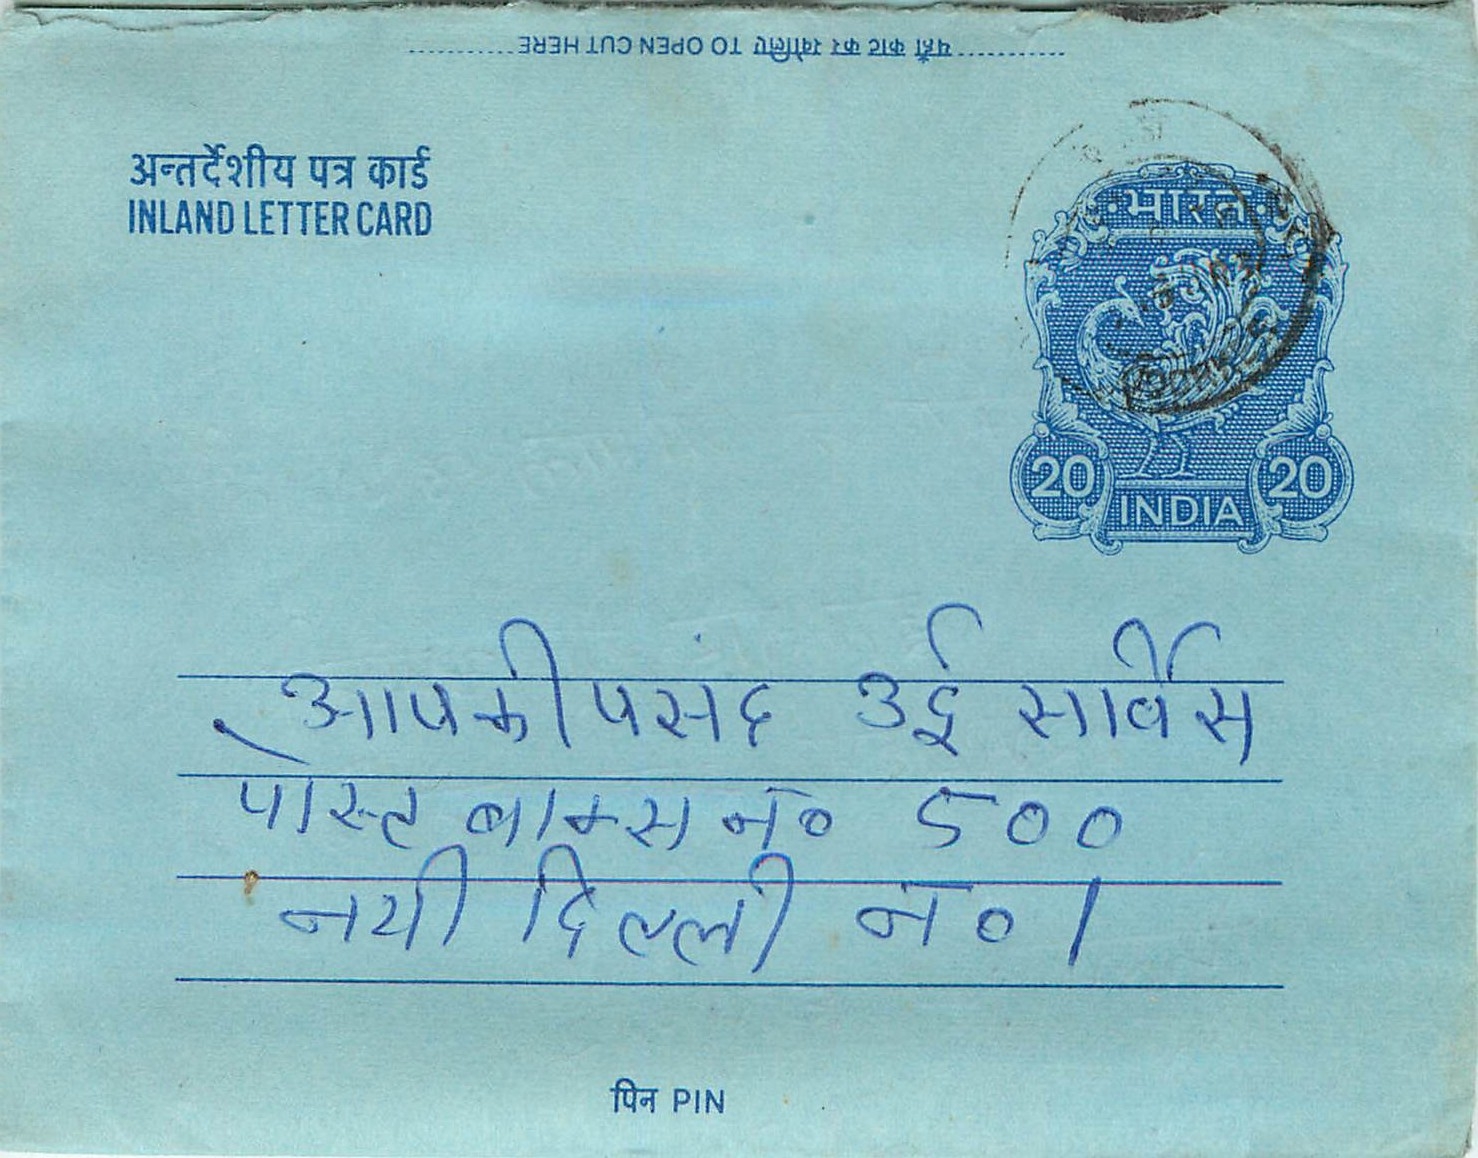 यहाँ काट कर खोलिए TO OPEN CUT HERE
अन्तर्देशीय पत्र कार्ड
INLAND LETTER CARD
भारत
20 20
INDIA
आपकी पसंद उर्दू सर्विस
पोस्ट बाक्स नं० 500
नयी दिल्ली नं० 1
पिन PIN